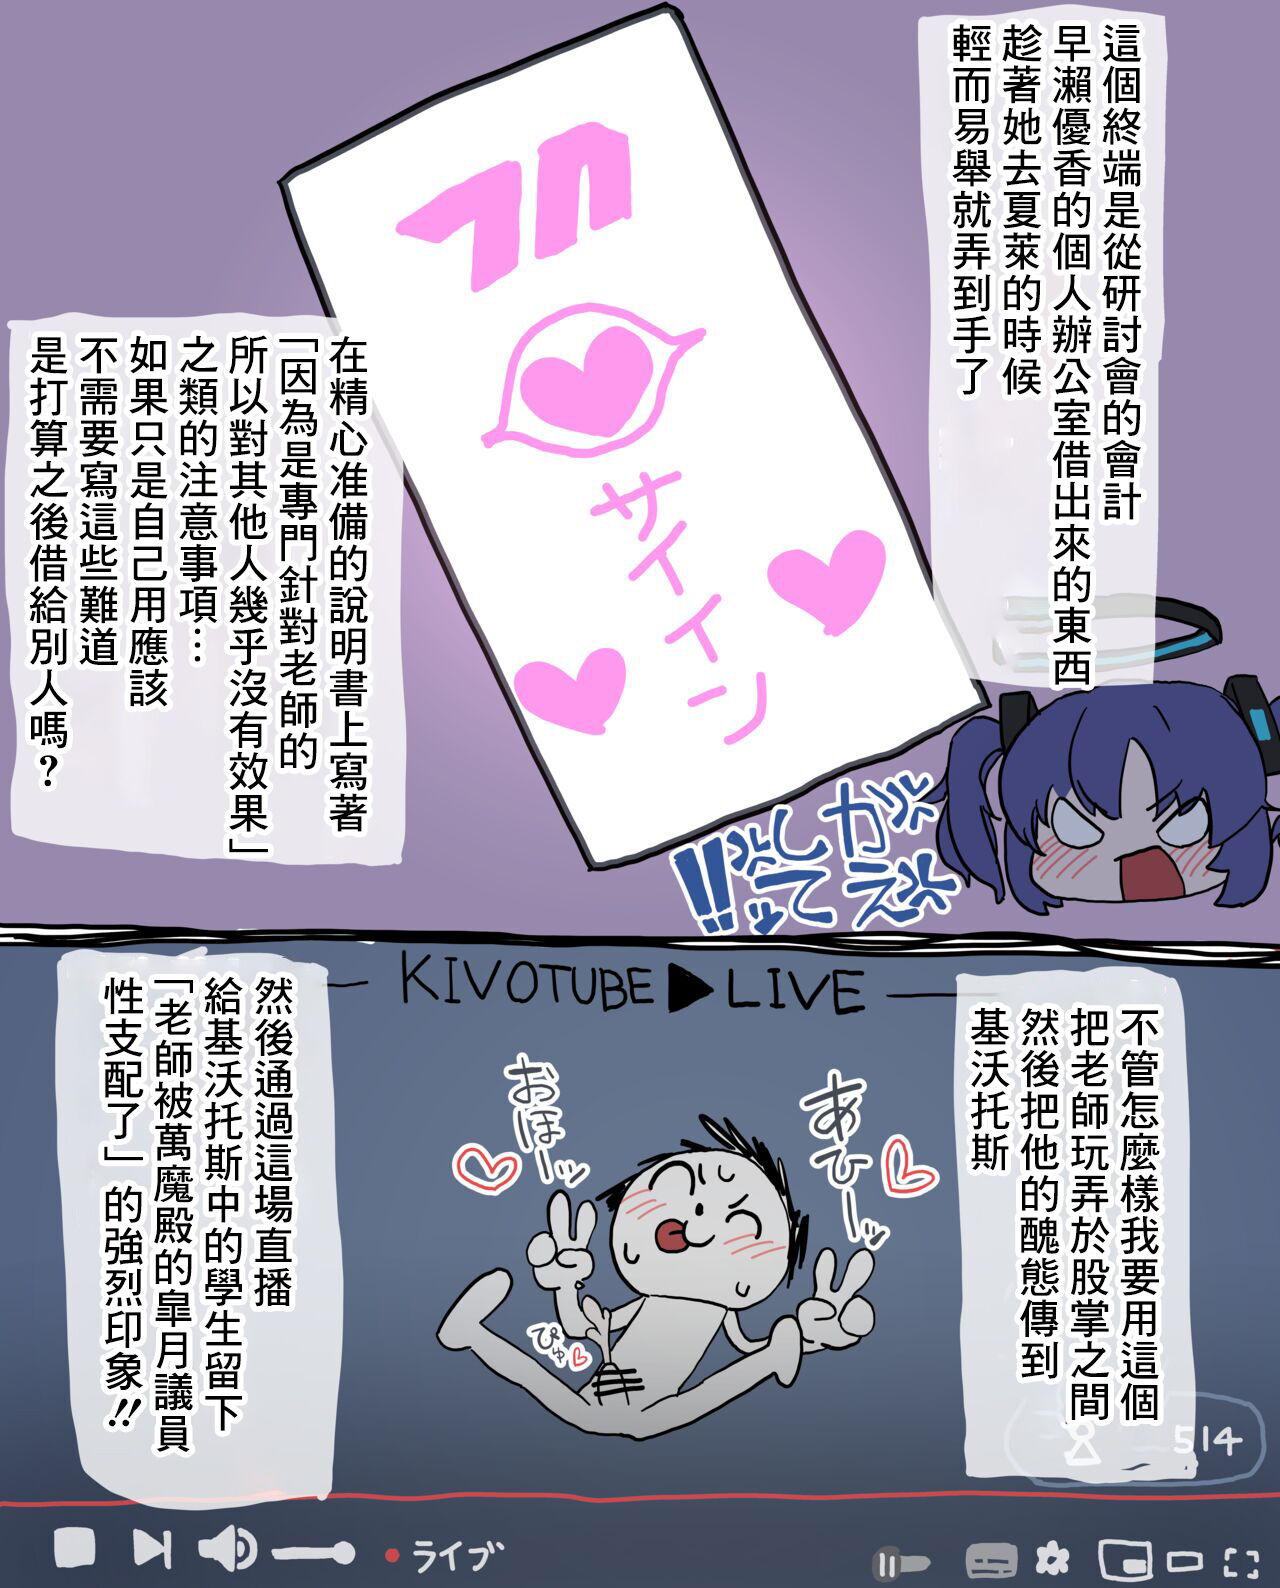 這個終端是從研討會的會計
早瀨優香的個人辦公室借出來的東西
趁著她去夏萊的時候
輕而易舉就弄到手了
サイイン
在精心准備的說明書上寫著
「因為是專門針對老師的
所以對其他人幾乎沒有效果」
之類的注意事項…
如果只是自己用應該
不需要寫這些難道
是打算之後借給別人嗎？
かえ
して!!
KIVOTUBE▶LIVE
不管怎麼樣我要用這個
把老師玩弄於股掌之間
然後把他的醜態傳到
基沃托斯
あひーッ
おほーッ
ぴゅ
然後通過這場直播
給基沃托斯中的學生留下
「老師被萬魔殿的皐月議員
性支配了」的強烈印象!!
514
ライブ